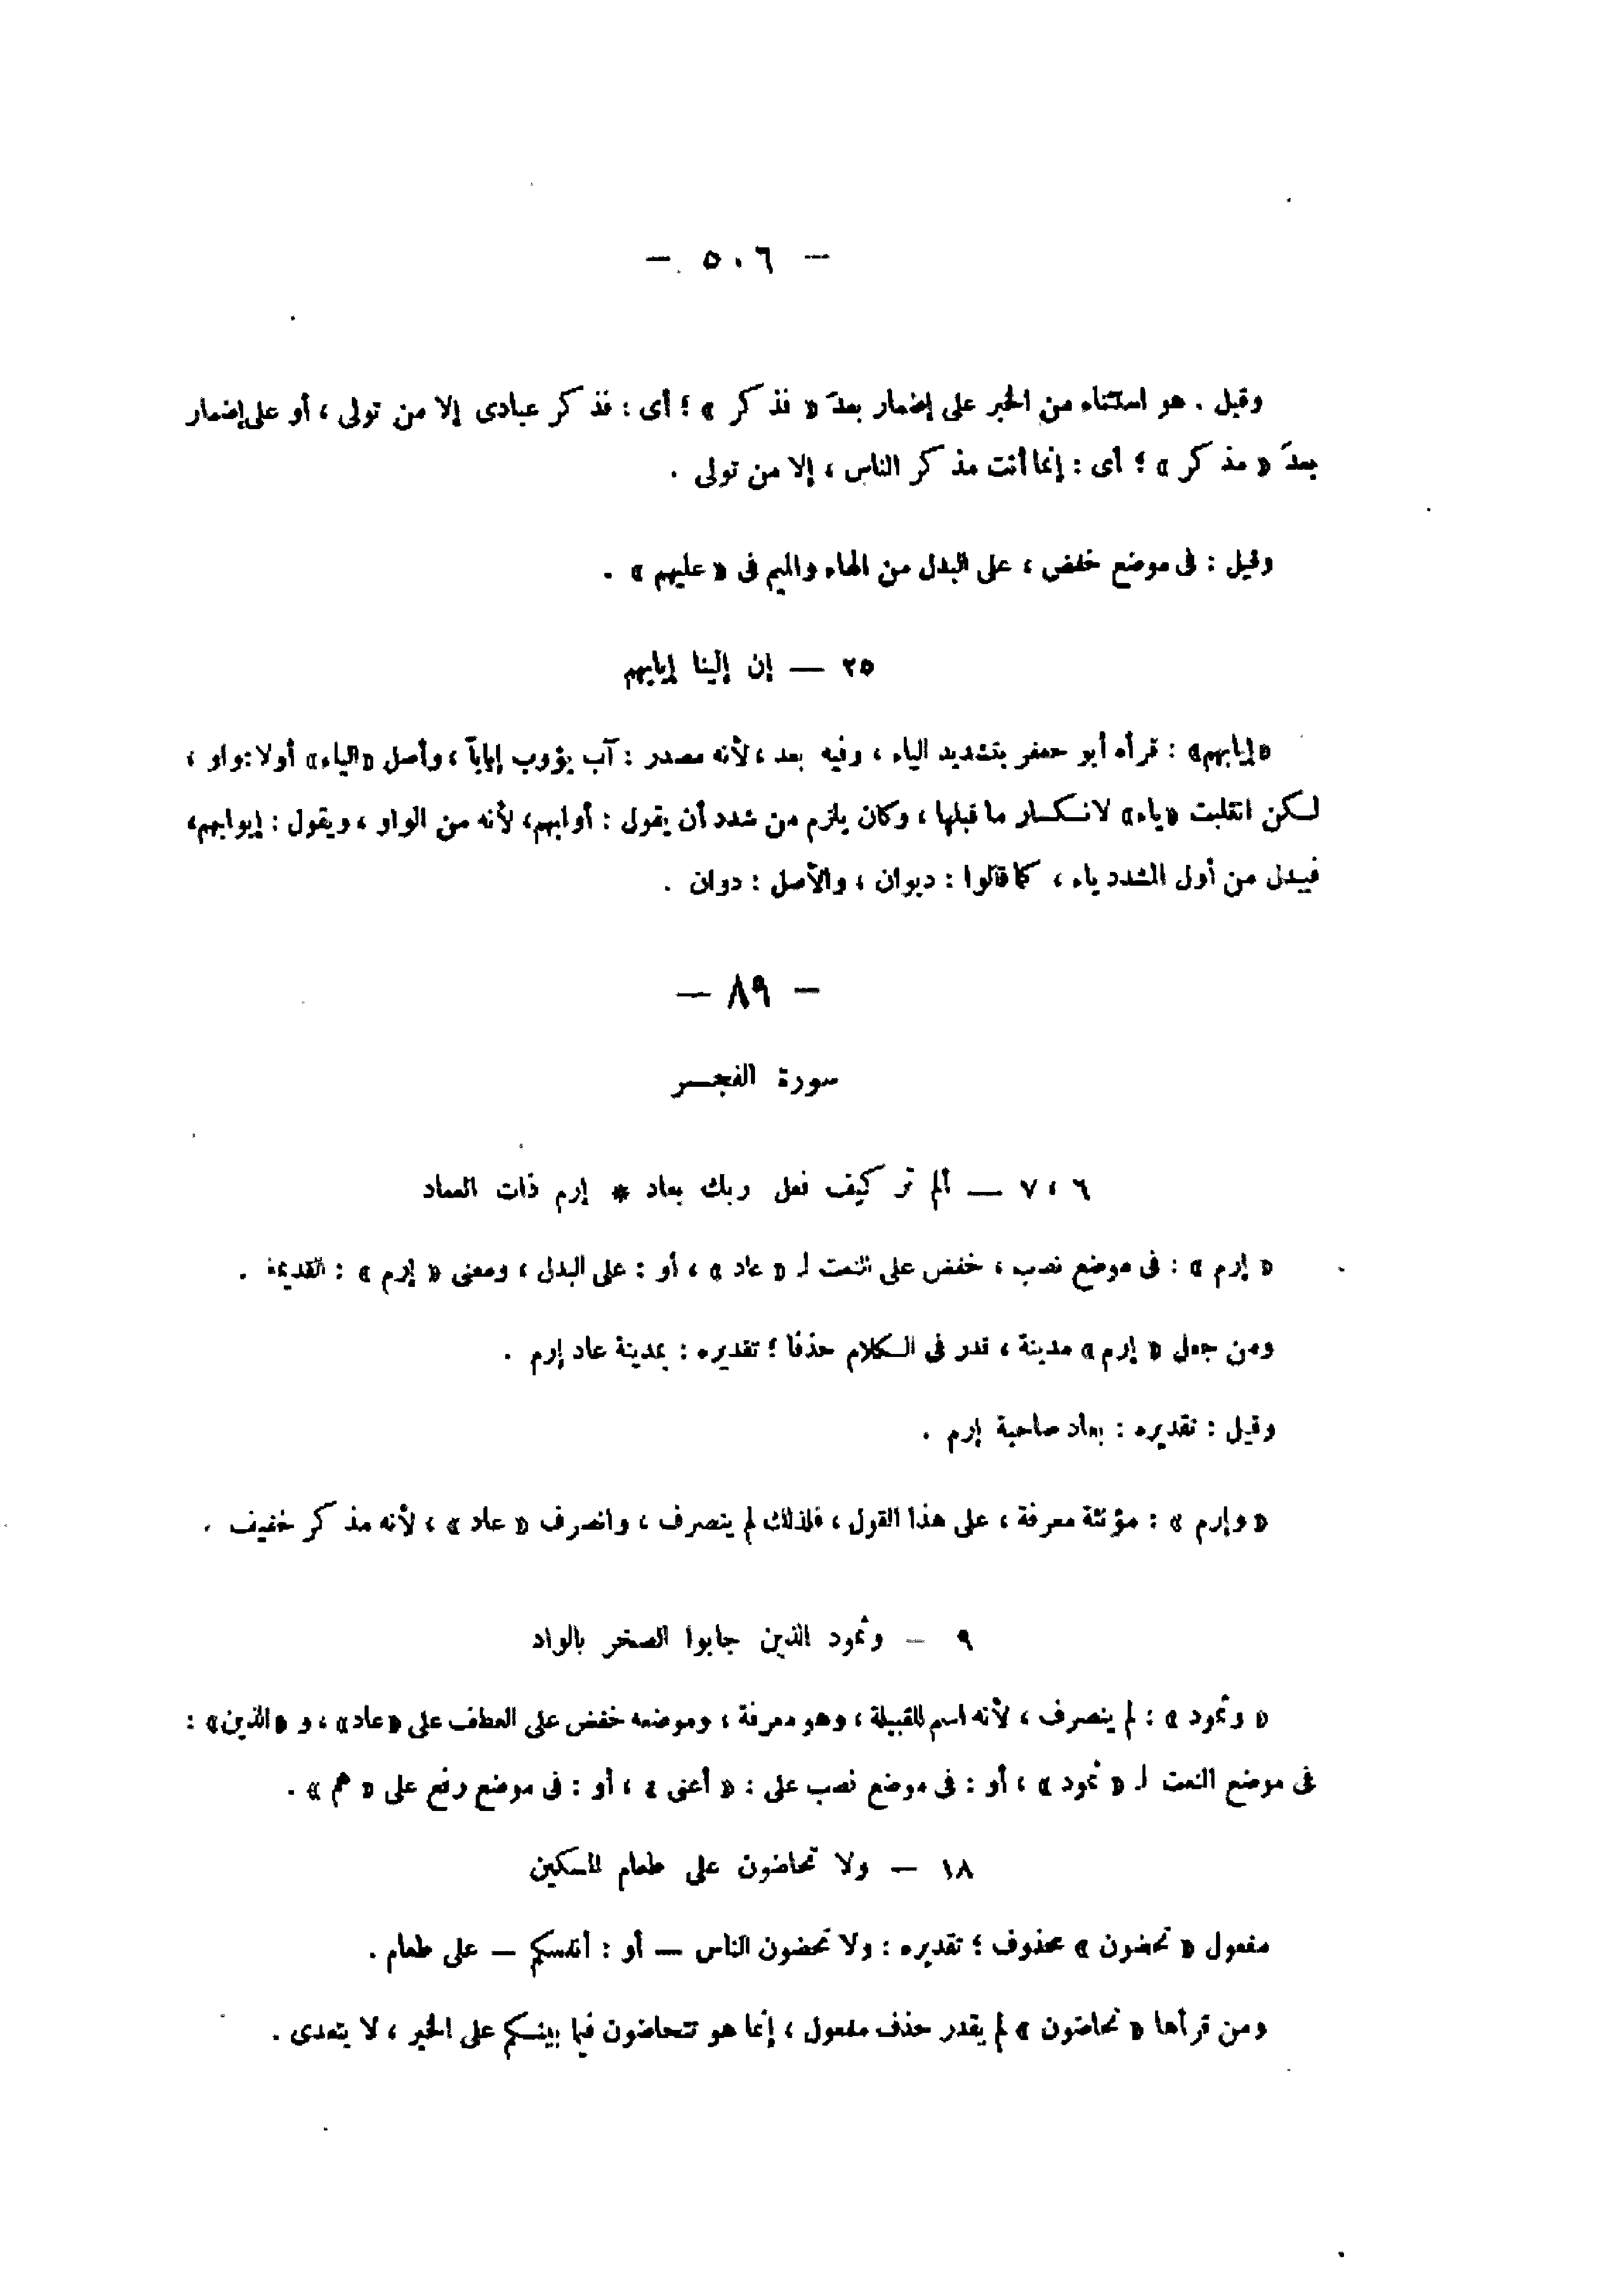 — ٥٠٦ —
وقيل . هو استثناء من الخبر على إضمار بعدَ « فذكر » ؛ أى : فذكر عبادى إلا من تولى ، أو على إضمار
بعدَ « مذكر » ؛ أى : إنما أنت مذكر الناس ، إلا من تولى .
وقيل : فى موضع خفض ، على البدل من الهاء والميم فى « عليهم » .
٢٥ — إن إلينا إيابهم
«إيابهم» : قرأه أبو جعفر بتشديد الياء ، وفيه بعد ، لأنه مصدر : آب يؤوب إياباً ، وأصل «الياء» أولا : واو ،
لكن انقلبت «ياء» لانكسار ما قبلها ، وكان يلزم من شدد أن يقول : أوابهم ، لأنه من الواو ، ويقول : إيوابهم،
فيبدل من أول المشدد ياء ، كما قالوا : ديوان ، والأصل : دوان .
— ٨٩ —
سورة الفجر
٦ ، ٧ — ألم تر كيف فعل ربك بعاد * إرم ذات العماد
« إرم » : فى موضع نصب ، خفض على النعت لـ « عاد » ، أو : على البدل ، ومعنى « إرم » : القديمة .
ومن جعل « إرم » مدينة ، قدر فى الكلام حذفا ؛ تقديره : بمدينة عاد إرم .
وقيل : تقديره : بعاد صاحبة إرم .
« وإرم » : مؤنثة معرفة ، على هذا القول ، فلذلك لم ينصرف ، وانصرف « عاد » ، لأنه مذكر خفيف .
٩ — وثمود الذين جابوا الصخر بالواد
« وثمود » : لم ينصرف ، لأنه اسم للقبيلة ، وهو معرفة ، وموضعه خفض على العطف على «عاد» ، و «الذين» :
فى موضع النعت لـ « ثمود » ، أو : فى موضع نصب على : « أعنى » ، أو : فى موضع رفع على « هم » .
١٨ — ولا تحاضون على طعام المسكين
مفعول « تحضون » محذوف ؛ تقديره : ولا تحضون الناس — أو : أنفسكم — على طعام .
ومن قرأها « تحاضون » لم يقدر حذف مفعول ، إنما هو تتحاضون فيما بينكم على الخير ، لا يتعدى .